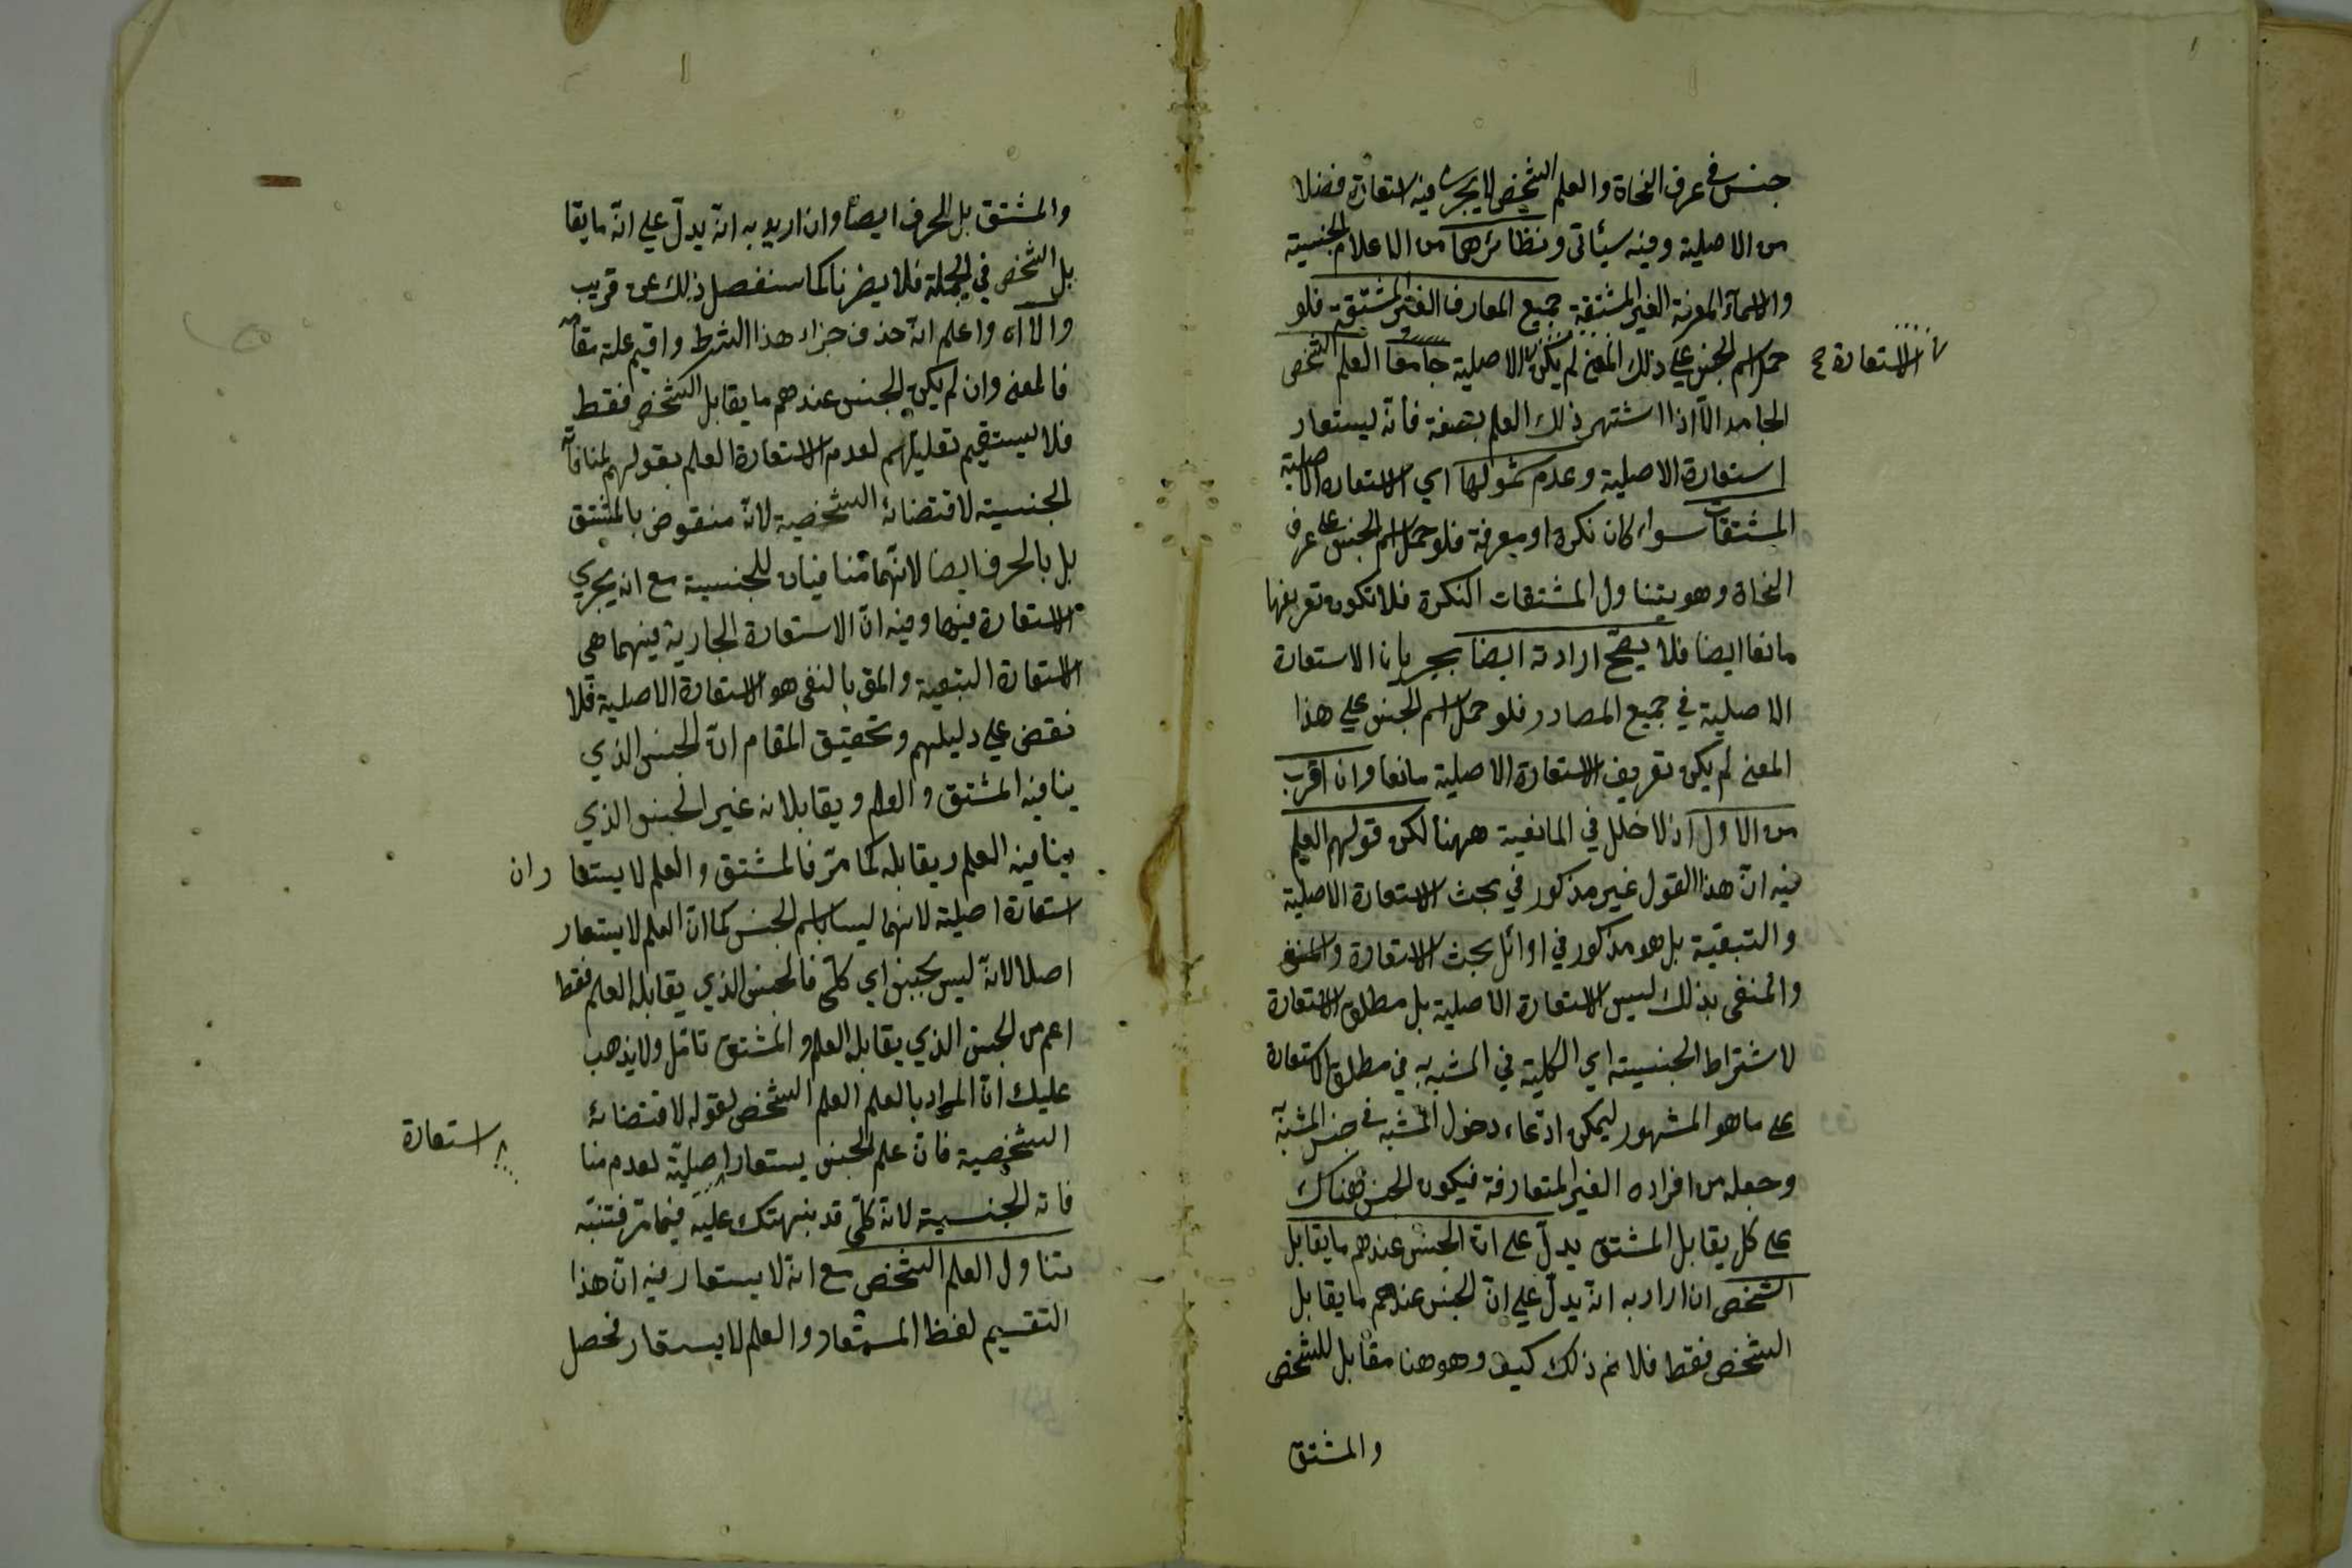 جنس في عرف النحاة والعلم الشخص لا يجري فيه استعارة فضلا
من الاصلية وفيه سيأتي ونظائرها من الاعلام الجنسية
والاسماء المعرفة الغير المشتقة جميع المعارف الغير المشتقة فلو
حمل اسم الجنس علي ذلك المعنى لم يكن الاصلية جامعا العلم الشخص
الاستعارة
الجامد الا اذا اشتهر ذلك العلم بصفة فانه ليستعار
استعارة الاصلية وعدم شمولها اي الاستعارة الاصلية
المشتقات سواء كان نكرة او معرفة فلو حمل اسم الجنس على عرف
النحاة وهو يتناول المشتقات النكرة فلا تكون تعريفها
مانعا ايضا فلا يصح ارادته ايضا بجريان الاستعارة
الاصلية في جميع المصادر فلو حمل اسم الجنس علي هذا
المعنى لم يكن تعريف الاستعارة الاصلية مانعا وان اقرب
من الاول اذ لا خلل في المانعية ههنا لكن قولهم العلم
فيه ان هذا القول غير مذكور في بحث الاستعارة الاصلية
والتبعية بل هو مذكور في اوائل بحث الاستعارة والمنفى
والمنفى بذلك ليس الاستعارة الاصلية بل مطلق الاستعارة
لاشتراط الجنسية اي الكلية في المشبه به في مطلق الاستعارة
على ما هو المشهور ليمكن ادعاء دخول المشبه في جنس المشبه به
وجعله من افراده الغير المتعارفة فيكون الجنس هناك
على كل يقابل المشتق يدل على ان الجنس عندهم ما يقابل
الشخص ان اراد به انه يدل علي ان الجنس عندهم ما يقابل
الشخص فقط فلا نم ذلك كيف وهو هنا مقابل للشخص
والمشتق
والمشتق بل الحرف ايضا وان اريد به انه يدل علي انه ما يقا
بل الشخص في الجملة فلا يضرنا كما سنفصل ذلك عن قريب
والا اه واعلم انه حذف جزاء هذا الشرط واقيم علته مقامه
فالمعنى وان لم يكن الجنس عندهم ما يقابل الشخص فقط
فلا يستقيم تعليلهم لعدم الاستعارة العلم بقولهم لمنافاته
الجنسية لاقتضائه الشخصية لانه منقوض بالمشتق
بل بالحرف ايضا لانهما منافيان للجنسية مع انه يجري
الاستعارة فيهما وفيه ان الاستعارة الجارية فيهما هي
الاستعارة التبعية والمق بالنفى هو الاستعارة الاصلية فلا
نقض علي دليلهم وتحقيق المقام ان الجنس الذي
ينافيه المشتق والعلم ويقابلانه غير الجنس الذي
ينافيه العلم ويقابله كما مر فالمشتق والعلم لا يستعاران
استعارة اصلية لانهما ليسا باسم الجنس كما ان العلم لا يستعار
اصلا لانه ليس بجنس اي كلي فالجنس الذي يقابله العلم فقط
اعم من الجنس الذي يقابله العلم والمشتق تامل ولا يذهب
عليك ان المراد بالعلم العلم الشخص لقوله لاقتضائه
الشخصية فان علم الجنس يستعار اصلية لعدم منا
استعارة
فاته الجنسية لانه كلي قد نبهتك عليه فيما مر فتنبه
يتناول العلم الشخص مع انه لا يستعار فيه ان هذا
التقسيم لفظ المستعار والعلم لا يستعار فحصل